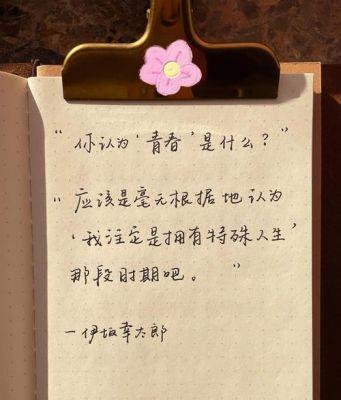 “你认为‘青春’是什么？”
“应该是毫无根据地认为
‘我注定是拥有特殊人生’
那段时期吧。”
—伊坂幸太郎